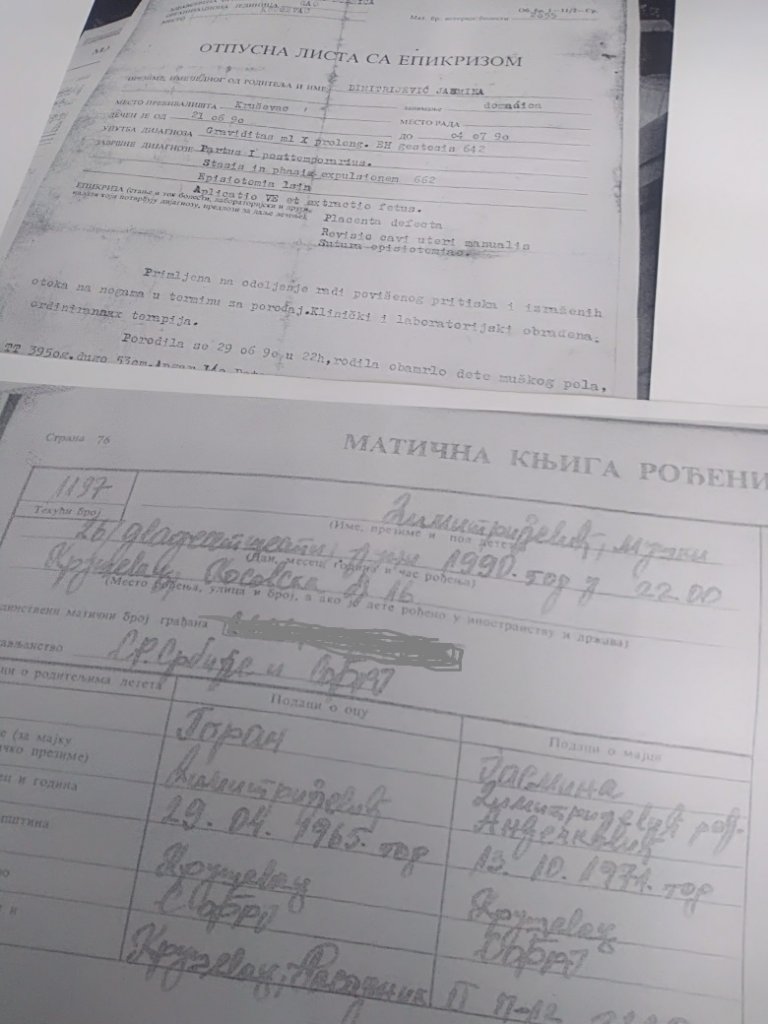 ОРГАНИЗАЦИОНА ЈЕДИНИЦА GAO
МЕСТО KRUŠEVAC
Мат. бр. историје болести 2655
ОТПУСНА ЛИСТА СА ЕПИКРИЗОМ
ПРЕЗИМЕ, ИМЕ ЈЕДНОГ ОД РОДИТЕЉА И ИМЕ DIMITRIJEVIĆ JASMINA
МЕСТО ПРЕБИВАЛИШТА Kruševac занимање domaćica
ЛЕЧЕН ЈЕ ОД 21 06 90 МЕСТО РАДА
ДО 04 07 90
УПУТНА ДИЈАГНОЗА Graviditas ml X prolong. EH gestosis 642
ЗАВРШНЕ ДИЈАГНОЗЕ Partus I posttemporarius.
Stasis in phasis expulsionem 662
Episiotomia
ЕПИКРИЗА (стање и ток болести, лабораторијски и други
налази који потврђују дијагнозу, предлози за даље лечење)
Aplicatio VE et extractio fetus.
Placenta defecta
Revisio cavi uteri manualis
Sutura episiotomiae.
Primljena na odeljenje radi povišenog pritiska i izraženih
otoka na nogama u terminu za porođaj.Klinički i laboratorijski obrađena.
ordinirana terapija.
Porodila se 29 06 90 u 22h,rodila obamrlo dete muškog pola,
TT 3950g.dugo 53cm.
Страна 76
МАТИЧНА КЊИГА РОЂЕНИ
1197
Текући број
Димитријевић, мушки
(Име, презиме и пол детета)
1990. год у 22 00
(Дан, месец, година и час рођења)
Крушевац, Косовска 16
(Место рођења, улица и број, а ако је дете рођено у иностранству и држава)
јединствени матични број грађана
држављанство СР.Србије и СФРЈ
Подаци о родитељима детета
Подаци о оцу
Подаци о мајци
(за мајку
презиме)
Горан
Димитријевић
Јасмина
Димитријевић рођ.
Анђелковић
и година
29. 04. 1965. год
13. 10. 1971. год
општина
Крушевац
Крушевац
СФРЈ
СФРЈ
Крушевац,